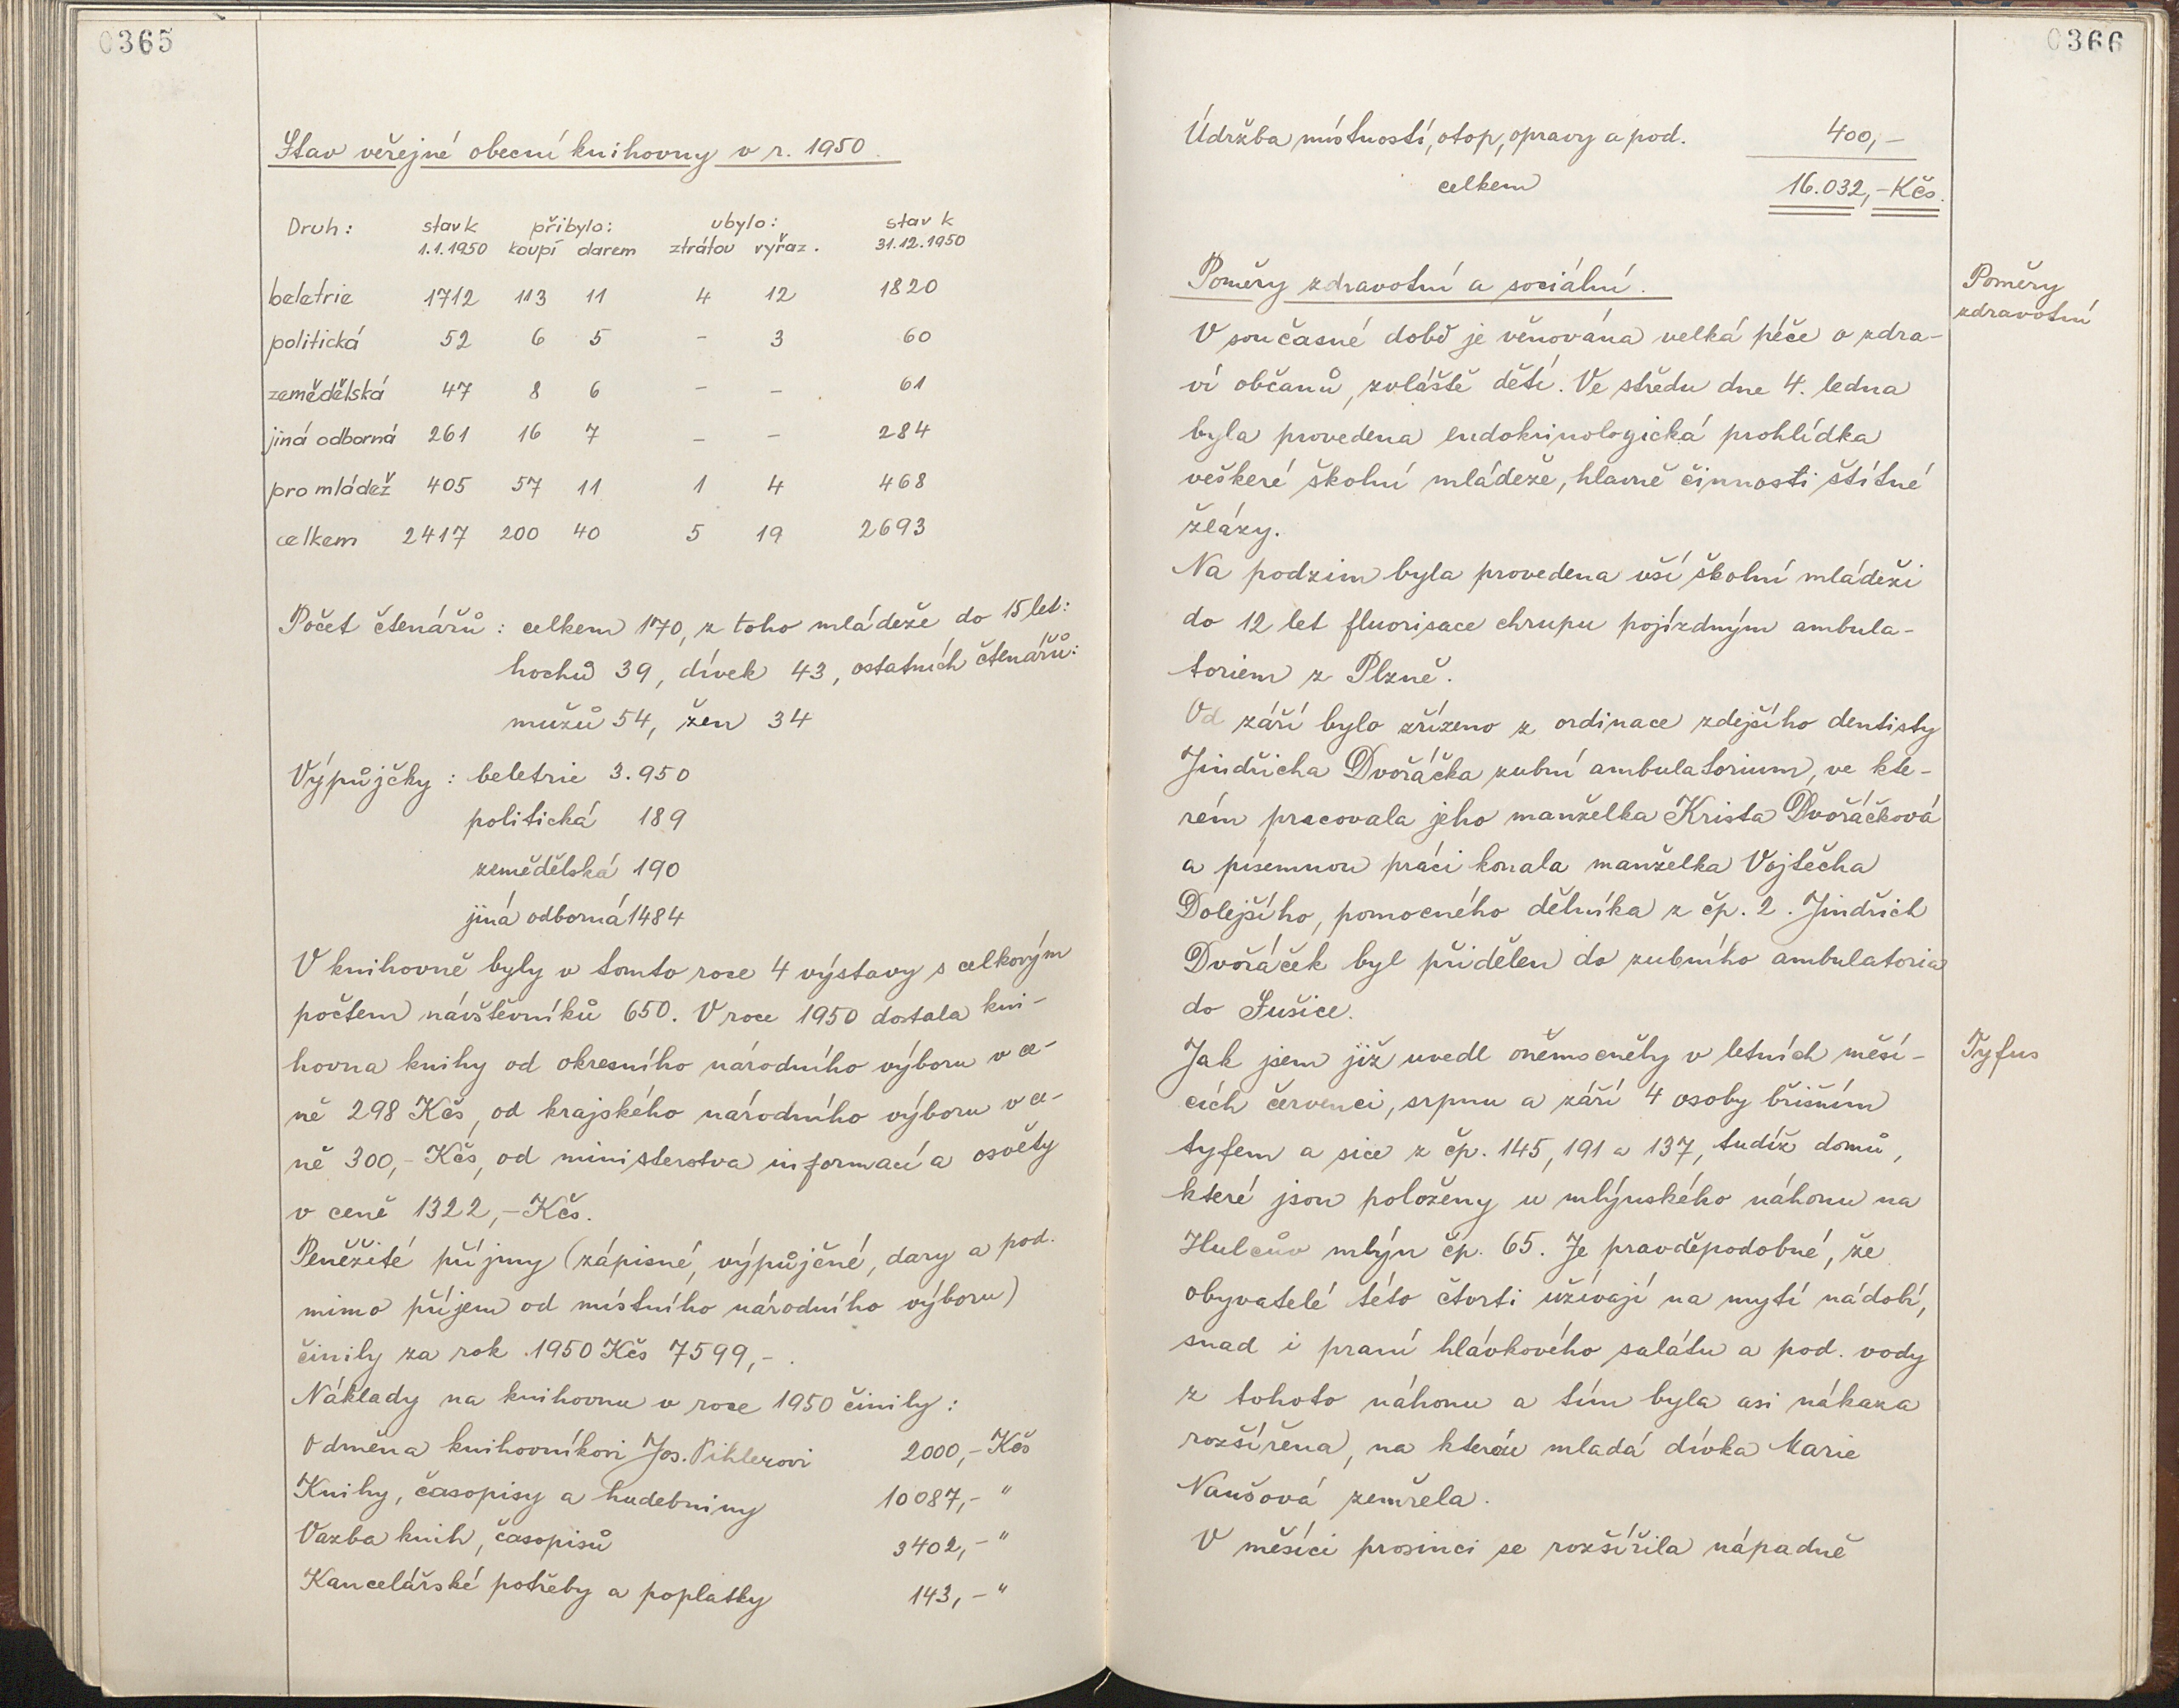 0365
Stav veřejné obecní knihovny v r. 1950.
Druh: stav k přibylo: ubylo: stav k
1.1.1950 koupí darem ztrátou vyřaz. 31.12.1950
beletrie 1712 113 11 4 12 1820
politická 52 6 5 – 3 60
zemědělská 47 8 6 – – 61
jiná odborná 261 16 7 – – 284
pro mládež 405 57 11 1 4 468
celkem 2417 200 40 5 19 2693
Počet čtenářů: celkem 170, z toho mládeže do 15 let:
hochů 39, dívek 43, ostatních čtenářů:
mužů 54, žen 34
Výpůjčky: beletrie 3.950
politická 189
zemědělská 190
jiná odborná 1484
V knihovně byly v tomto roce 4 výstavy s celkovým
počtem návštěvníků 650. V roce 1950 dostala kni-
hovna knihy od okresního národního výboru v ce-
ně 298 Kčs, od krajského národního výboru v ce-
ně 300,- Kčs, od ministerstva informací a osvěty
v ceně 1322,- Kčs.
Peněžité příjmy (zápisné, výpůjčné, dary a pod.
mimo příjem od místního národního výboru)
činily za rok 1950 Kčs 7599,-.
Náklady na knihovnu v roce 1950 činily:
Odměna knihovníkovi Jos. Pihlerovi 2000,- Kčs
Knihy, časopisy a hudebniny 10087,- "
Vazba knih, časopisů 3402,- "
Kancelářské potřeby a poplatky 143,- "
0366
Údržba místností, otop, opravy a pod. 400,-
celkem 16.032,- Kčs.
Poměry zdravotní a sociální.
Poměry
zdravotní
V současné době je věnována velká péče o zdra-
ví občanů, zvláště dětí. Ve středu dne 4. ledna
byla provedena endokrinologická prohlídka
veškeré školní mládeže, hlavně činnosti štítné
žlázy.
Na podzim byla provedena vší školní mládeži
do 12 let fluorisace chrupu pojízdným ambula-
toriem z Plzně.
Od září bylo zřízeno z ordinace zdejšího dentisty
Jindřicha Dvořáčka zubní ambulatorium, ve kte-
rém pracovala jeho manželka Krista Dvořáčková
a písemnou práci konala manželka Vojtěcha
Dolejšího, pomocného dělníka z čp. 2. Jindřich
Dvořáček byl přidělen do zubního ambulatoria
do Sušice.
Jak jsem již uvedl oněmocněly v letních měsí-
Tyfus
cích červenci, srpnu a září 4 osoby břišním
tyfem a sice z čp. 145, 191 a 137, tudíž domů,
které jsou položeny u mlýnského náhonu na
Hulcův mlýn čp. 65. Je pravděpodobné, že
obyvatelé této čtvrti užívají na mytí nádobí,
snad i praní hlávkového salátu a pod. vody
z tohoto náhonu a tím byla asi nákaza
rozšířena, na kterou mladá dívka Marie
Naušová zemřela.
V měsíci prosinci se rozšířila nápadně